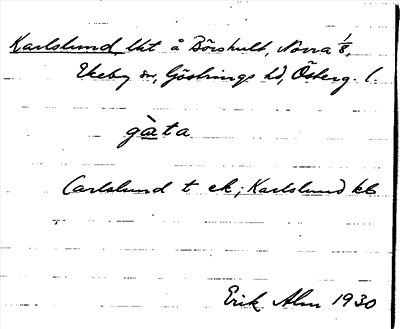 Karlslund, lht å Börshult, Norra 1/8,
Ekeby sn, Göstrings hd, Österg. l.
gàta
Carlslund t ek; Karlslund kb
Erik Alm 1930